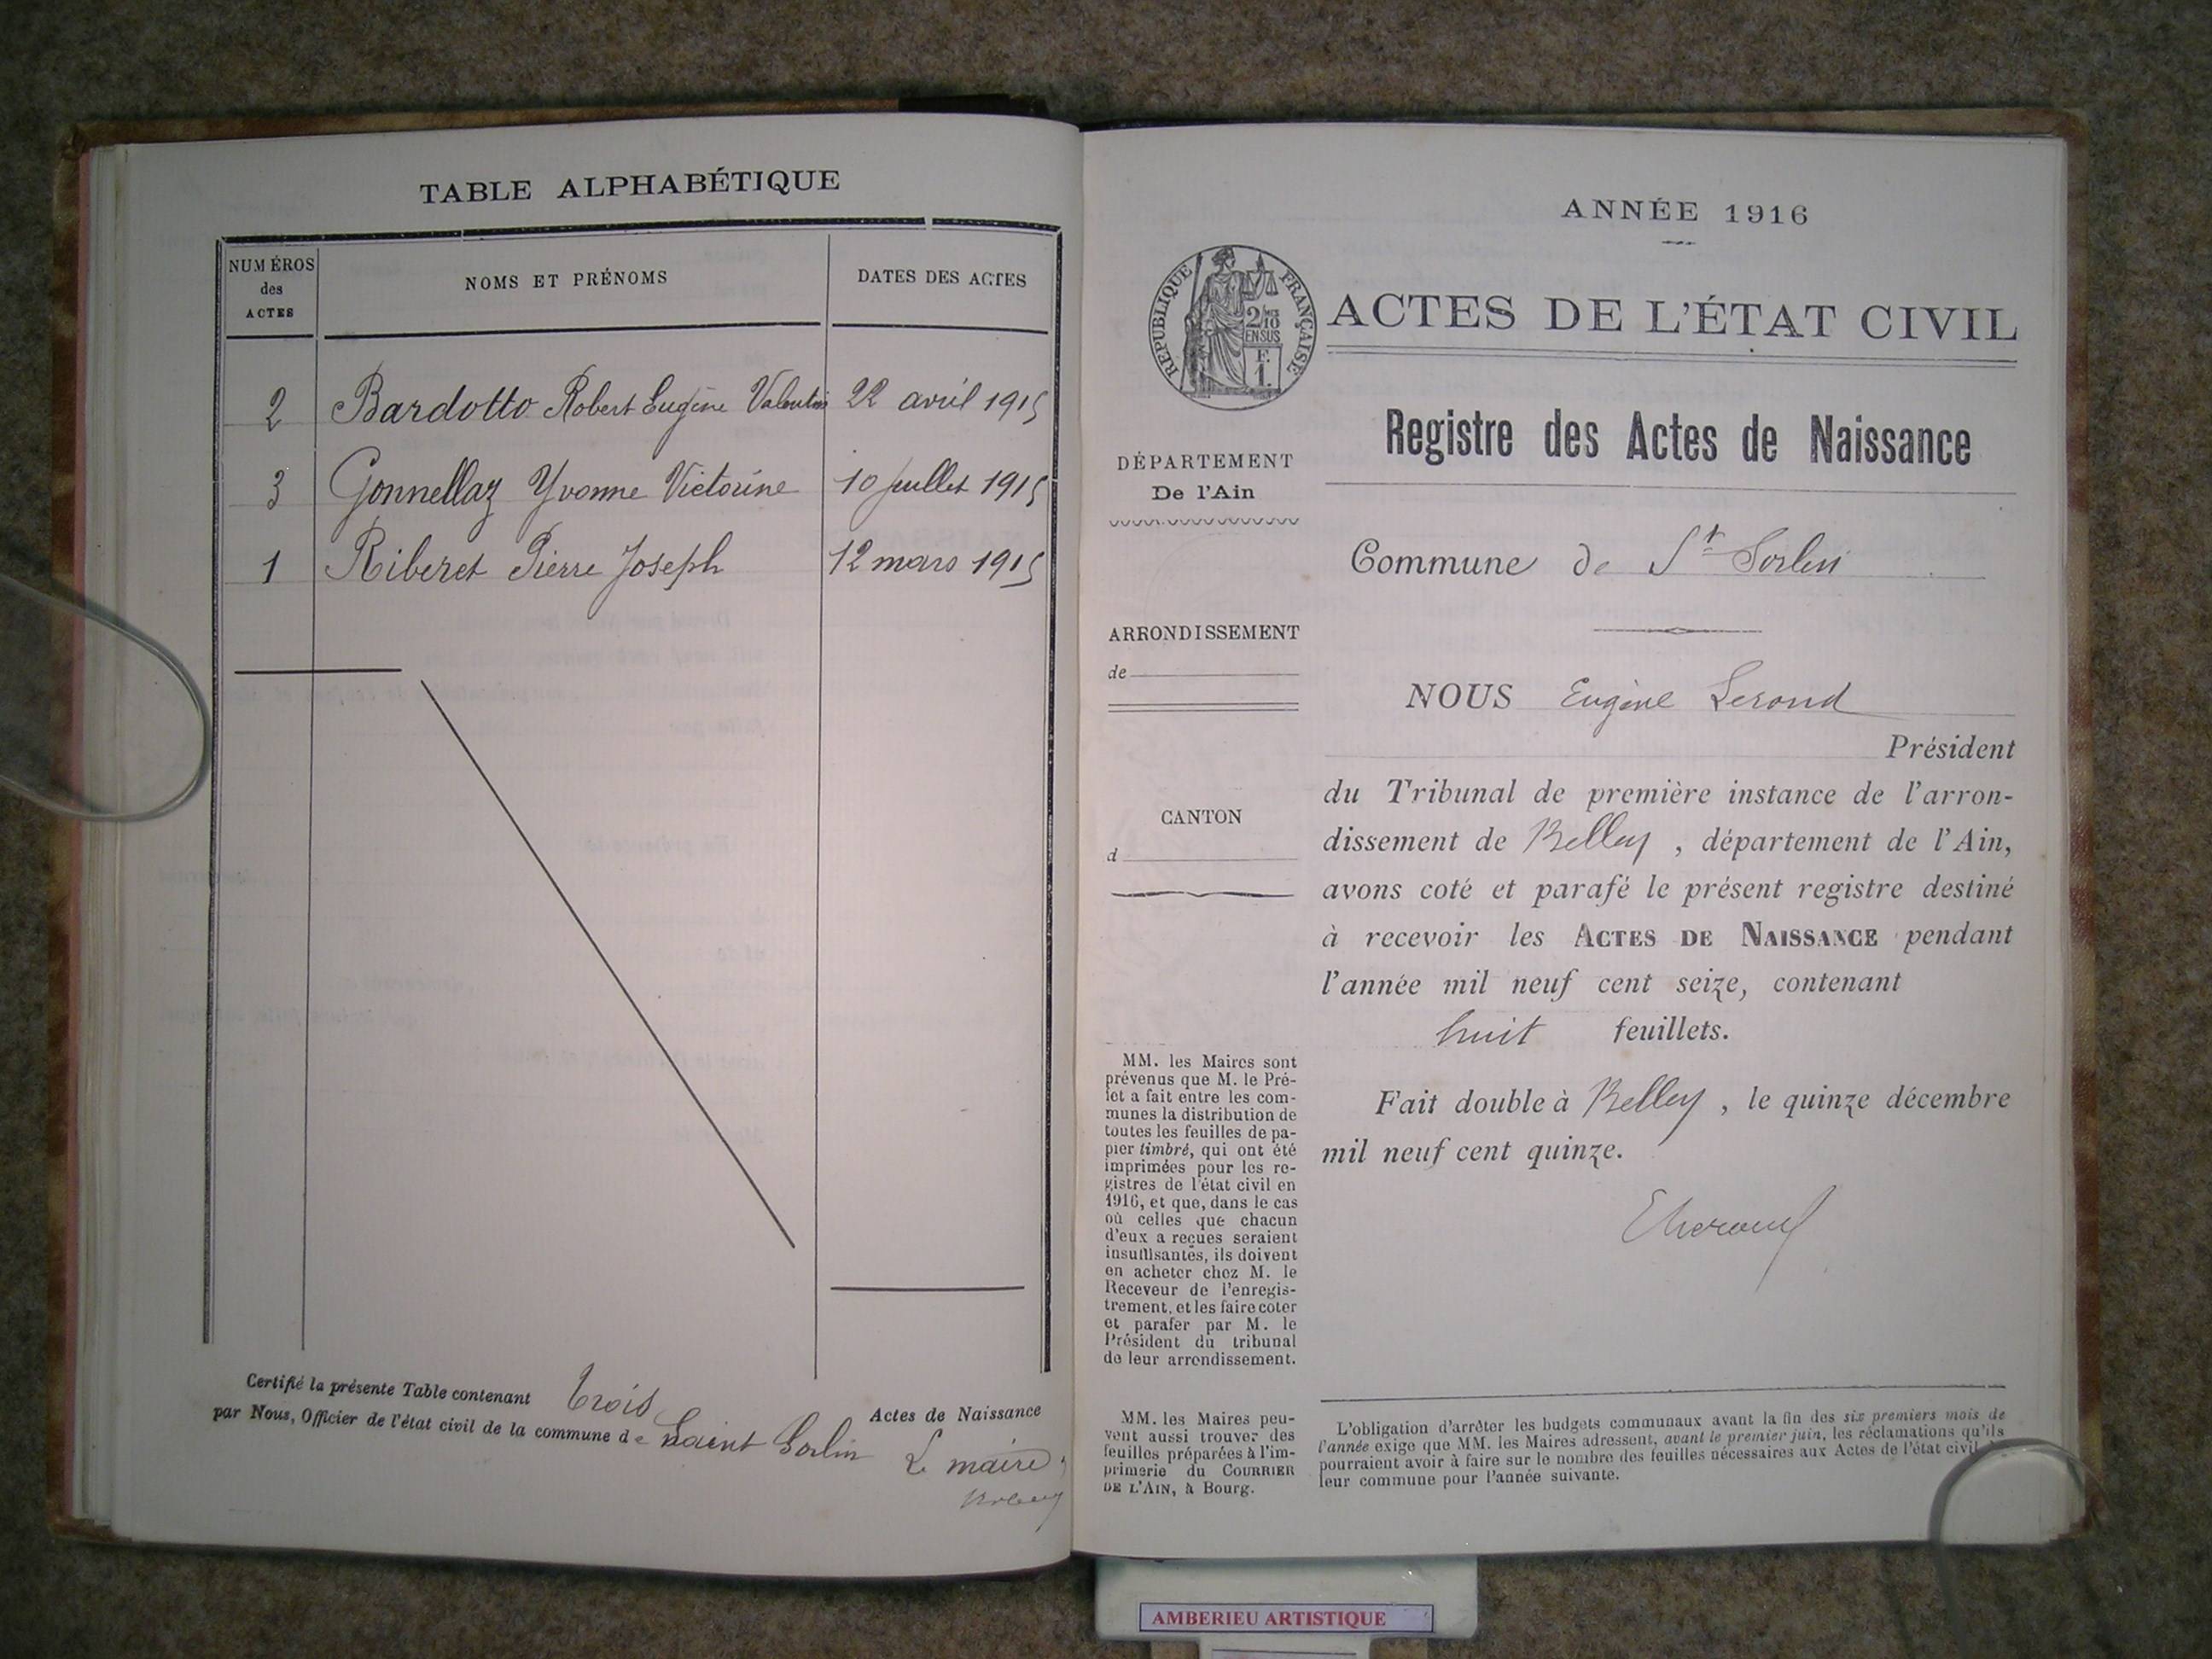 TABLE ALPHABÉTIQUE
NUMÉROS
des
ACTES
NOMS ET PRÉNOMS
DATES DES ACTES
2 Bardotto Robert Eugène Valentin 22 avril 1915
3 Gonnellaz Yvonne Victorine 10 juillet 1915
1 Riberet Pierre Joseph 12 mars 1915
Certifié la présente Table contenant trois Actes de Naissance
par Nous, Officier de l'état civil de la commune de Saint Sorlin
Le maire
ANNÉE 1916
RÉPUBLIQUE FRANÇAISE
2/10
EN SUS
F.
1.
ACTES DE L'ÉTAT CIVIL
Registre des Actes de Naissance
DÉPARTEMENT
De l'Ain
Commune de St Sorlin
ARRONDISSEMENT
de
CANTON
d
NOUS Eugène Lerond
Président
du Tribunal de première instance de l'arron-
dissement de Belley, département de l'Ain,
avons coté et parafé le présent registre destiné
à recevoir les ACTES DE NAISSANCE pendant
l'année mil neuf cent seize, contenant
huit feuillets.
Fait double à Belley, le quinze décembre
mil neuf cent quinze.
MM. les Maires sont
prévenus que M. le Pré-
fet a fait entre les com-
munes la distribution de
toutes les feuilles de pa-
pier timbré, qui ont été
imprimées pour les re-
gistres de l'état civil en
1916, et que, dans le cas
où celles que chacun
d'eux a reçues seraient
insuffisantes, ils doivent
en acheter chez M. le
Receveur de l'enregis-
trement, et les faire coter
et parafer par M. le
Président du tribunal
de leur arrondissement.
MM. les Maires peu-
vent aussi trouver des
feuilles préparées à l'im-
primerie du COURRIER
DE L'AIN, à Bourg.
L'obligation d'arrêter les budgets communaux avant la fin des six premiers mois de
l'année exige que MM. les Maires adressent, avant le premier juin, les réclamations qu'ils
pourraient avoir à faire sur le nombre des feuilles nécessaires aux Actes de l'état civil
leur commune pour l'année suivante.
AMBERIEU ARTISTIQUE